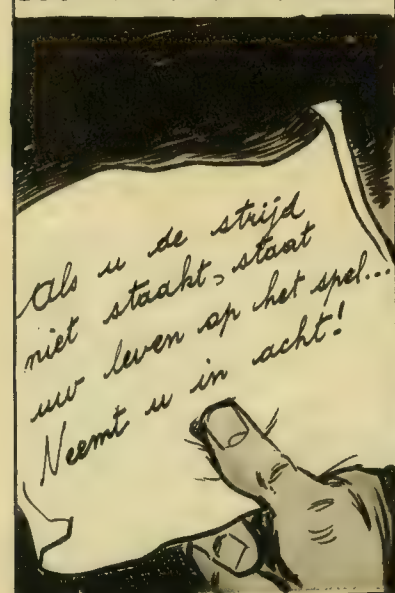 Als u de strijd
niet staakt, staat
uw leven op het spel...
Neemt u in acht!